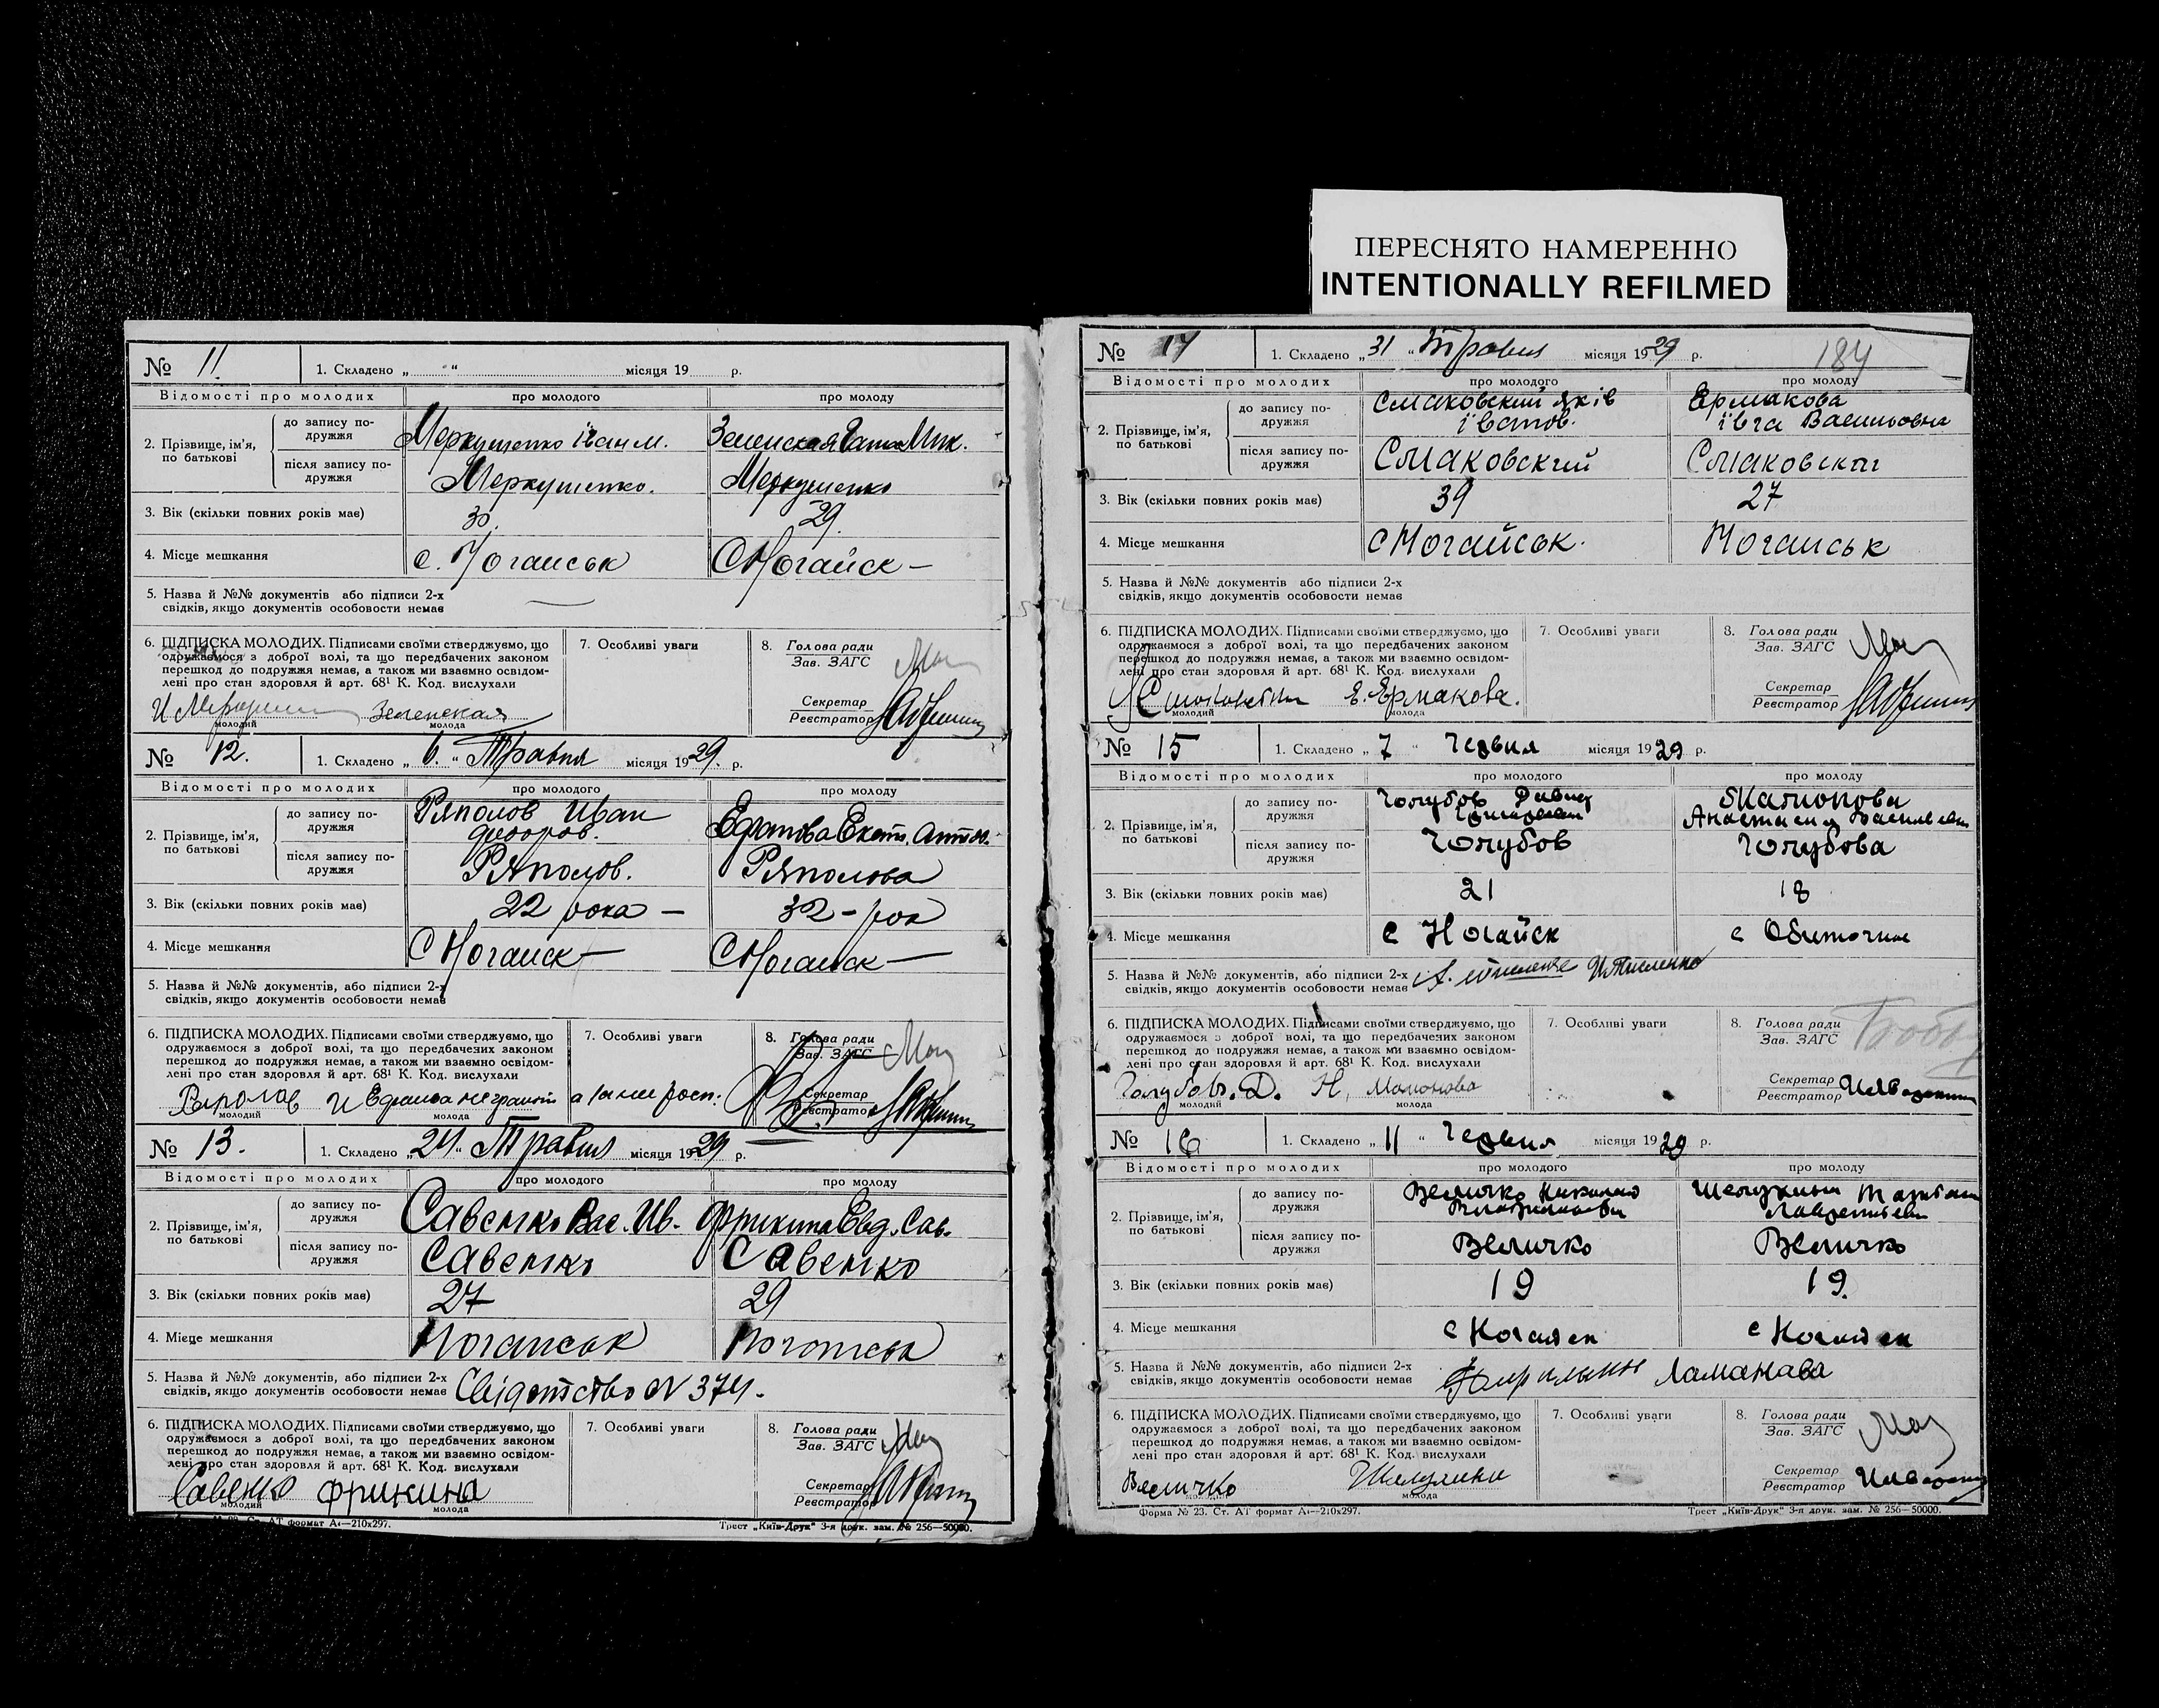 ПЕРЕСНЯТО НАМЕРЕННО
INTENTIONALLY REFILMED
№ 11. 1. Складено „ “ місяця 19 р.
Відомості про молодих про молодого про молоду
2. Прізвище, ім'я, по батькові
до запису по-
дружжя Меркушенко Іван М. Зеленская Мик.
після запису по-
дружжя Меркушенко. Меркушенко
3. Вік (скільки повних років має) 30. 29.
4. Місце мешкання с. Ногайськ С Ногайск —
5. Назва й №№ документів або підписи 2-х
свідків, якщо документів особовости немає —
6. ПІДПИСКА МОЛОДИХ. Підписами своїми стверджуємо, що
одружаємося з доброї волі, та що передбачених законом
перешкод до подружжя немає, а також ми взаємно освідом-
лені про стан здоровля й арт. 68¹ К. Код. вислухали
Зеленская
молодий молода
7. Особливі уваги
8. Голова ради
Зав. ЗАГС
Секретар
Реєстратор
№ 12. 1. Складено „ 6. “ Травня місяця 1929. р.
Відомості про молодих про молодого про молоду
2. Прізвище, ім'я, по батькові
до запису по-
дружжя Ряполов Иван
федоров. Екат. Антон.
після запису по-
дружжя Ряполов. Ряполова
3. Вік (скільки повних років має) 22 рока — 32 - рок
4. Місце мешкання С Ногайск — С Ногайск —
5. Назва й №№ документів, або підписи 2-х
свідків, якщо документів особовости немає
6. ПІДПИСКА МОЛОДИХ. Підписами своїми стверджуємо, що
одружаємося з доброї волі, та що передбачених законом
перешкод до подружжя немає, а також ми взаємно освідом-
лені про стан здоровля й арт. 68¹ К. Код. вислухали
молодий молода
7. Особливі уваги
8. Голова ради
Зав. ЗАГС
Секретар
Реєстратор
№ 13. 1. Складено „ 24 “ Травня місяця 1929 р.
Відомості про молодих про молодого про молоду
2. Прізвище, ім'я, по батькові
до запису по-
дружжя Савенко Вас. Ив. Фрикина Евд. Сав.
після запису по-
дружжя Савенко Савенко
3. Вік (скільки повних років має) 27 29
4. Місце мешкання Ногайськ Ногайськ
5. Назва й №№ документів, або підписи 2-х
свідків, якщо документів особовости немає Свідотство N 374.
6. ПІДПИСКА МОЛОДИХ. Підписами своїми стверджуємо, що
одружаємося з доброї волі, та що передбачених законом
перешкод до подружжя немає, а також ми взаємно освідом-
лені про стан здоровля й арт. 68¹ К. Код. вислухали
Савенко Фрикина
молодий молода
7. Особливі уваги
8. Голова ради
Зав. ЗАГС
Секретар
Реєстратор
Ст. АТ формат А₄—210х297. Трест „Київ-Друк“ 3-я друк. зам. № 256—50000.
№ 14 1. Складено „ 31 “ Травня місяця 1929 р.
184
Відомості про молодих про молодого про молоду
2. Прізвище, ім'я, по батькові
до запису по-
дружжя Смаковский Яків
Іванов. Ермакова
Івга Васильовна
після запису по-
дружжя Смаковский Смаковскаи
3. Вік (скільки повних років має) 39 27
4. Місце мешкання с Ногайськ. Ногайськ
5. Назва й №№ документів або підписи 2-х
свідків, якщо документів особовости немає
6. ПІДПИСКА МОЛОДИХ. Підписами своїми стверджуємо, що
одружаємося з доброї волі, та що передбачених законом
перешкод до подружжя немає, а також ми взаємно освідом-
лені про стан здоровля й арт. 68¹ К. Код. вислухали
Е. Ермакова.
молодий молода
7. Особливі уваги
8. Голова ради
Зав. ЗАГС
Секретар
Реєстратор
№ 15 1. Складено „ 7 “ Червня місяця 1929 р.
Відомості про молодих про молодого про молоду
2. Прізвище, ім'я, по батькові
до запису по-
дружжя Голубов Давид
Мамонова
Анастасия
після запису по-
дружжя Голубов Голубова
3. Вік (скільки повних років має) 21 18
4. Місце мешкання с Ногайск с Обиточне
5. Назва й №№ документів, або підписи 2-х
свідків, якщо документів особовости немає
6. ПІДПИСКА МОЛОДИХ. Підписами своїми стверджуємо, що
одружаємося з доброї волі, та що передбачених законом
перешкод до подружжя немає, а також ми взаємно освідом-
лені про стан здоровля й арт. 68¹ К. Код. вислухали
Голубов. Д. Н. Мамонова
молодий молода
7. Особливі уваги
8. Голова ради
Зав. ЗАГС
Секретар
Реєстратор
№ 16 1. Складено „ 11 “ Червня місяця 1929 р.
Відомості про молодих про молодого про молоду
2. Прізвище, ім'я, по батькові
до запису по-
дружжя Величко Николай
після запису по-
дружжя Величко Величко
3. Вік (скільки повних років має) 19 19.
4. Місце мешкання с Ногайск с Ногайск
5. Назва й №№ документів, або підписи 2-х
свідків, якщо документів особовости немає Ламанава
6. ПІДПИСКА МОЛОДИХ. Підписами своїми стверджуємо, що
одружаємося з доброї волі, та що передбачених законом
перешкод до подружжя немає, а також ми взаємно освідом-
лені про стан здоровля й арт. 68¹ К. Код. вислухали
Величко
молода
7. Особливі уваги
8. Голова ради
Зав. ЗАГС
Секретар
Реєстратор
Форма № 23. Ст. АТ формат А₄—210х297. Трест „Київ-Друк“ 3-я друк. зам. № 256—50000.